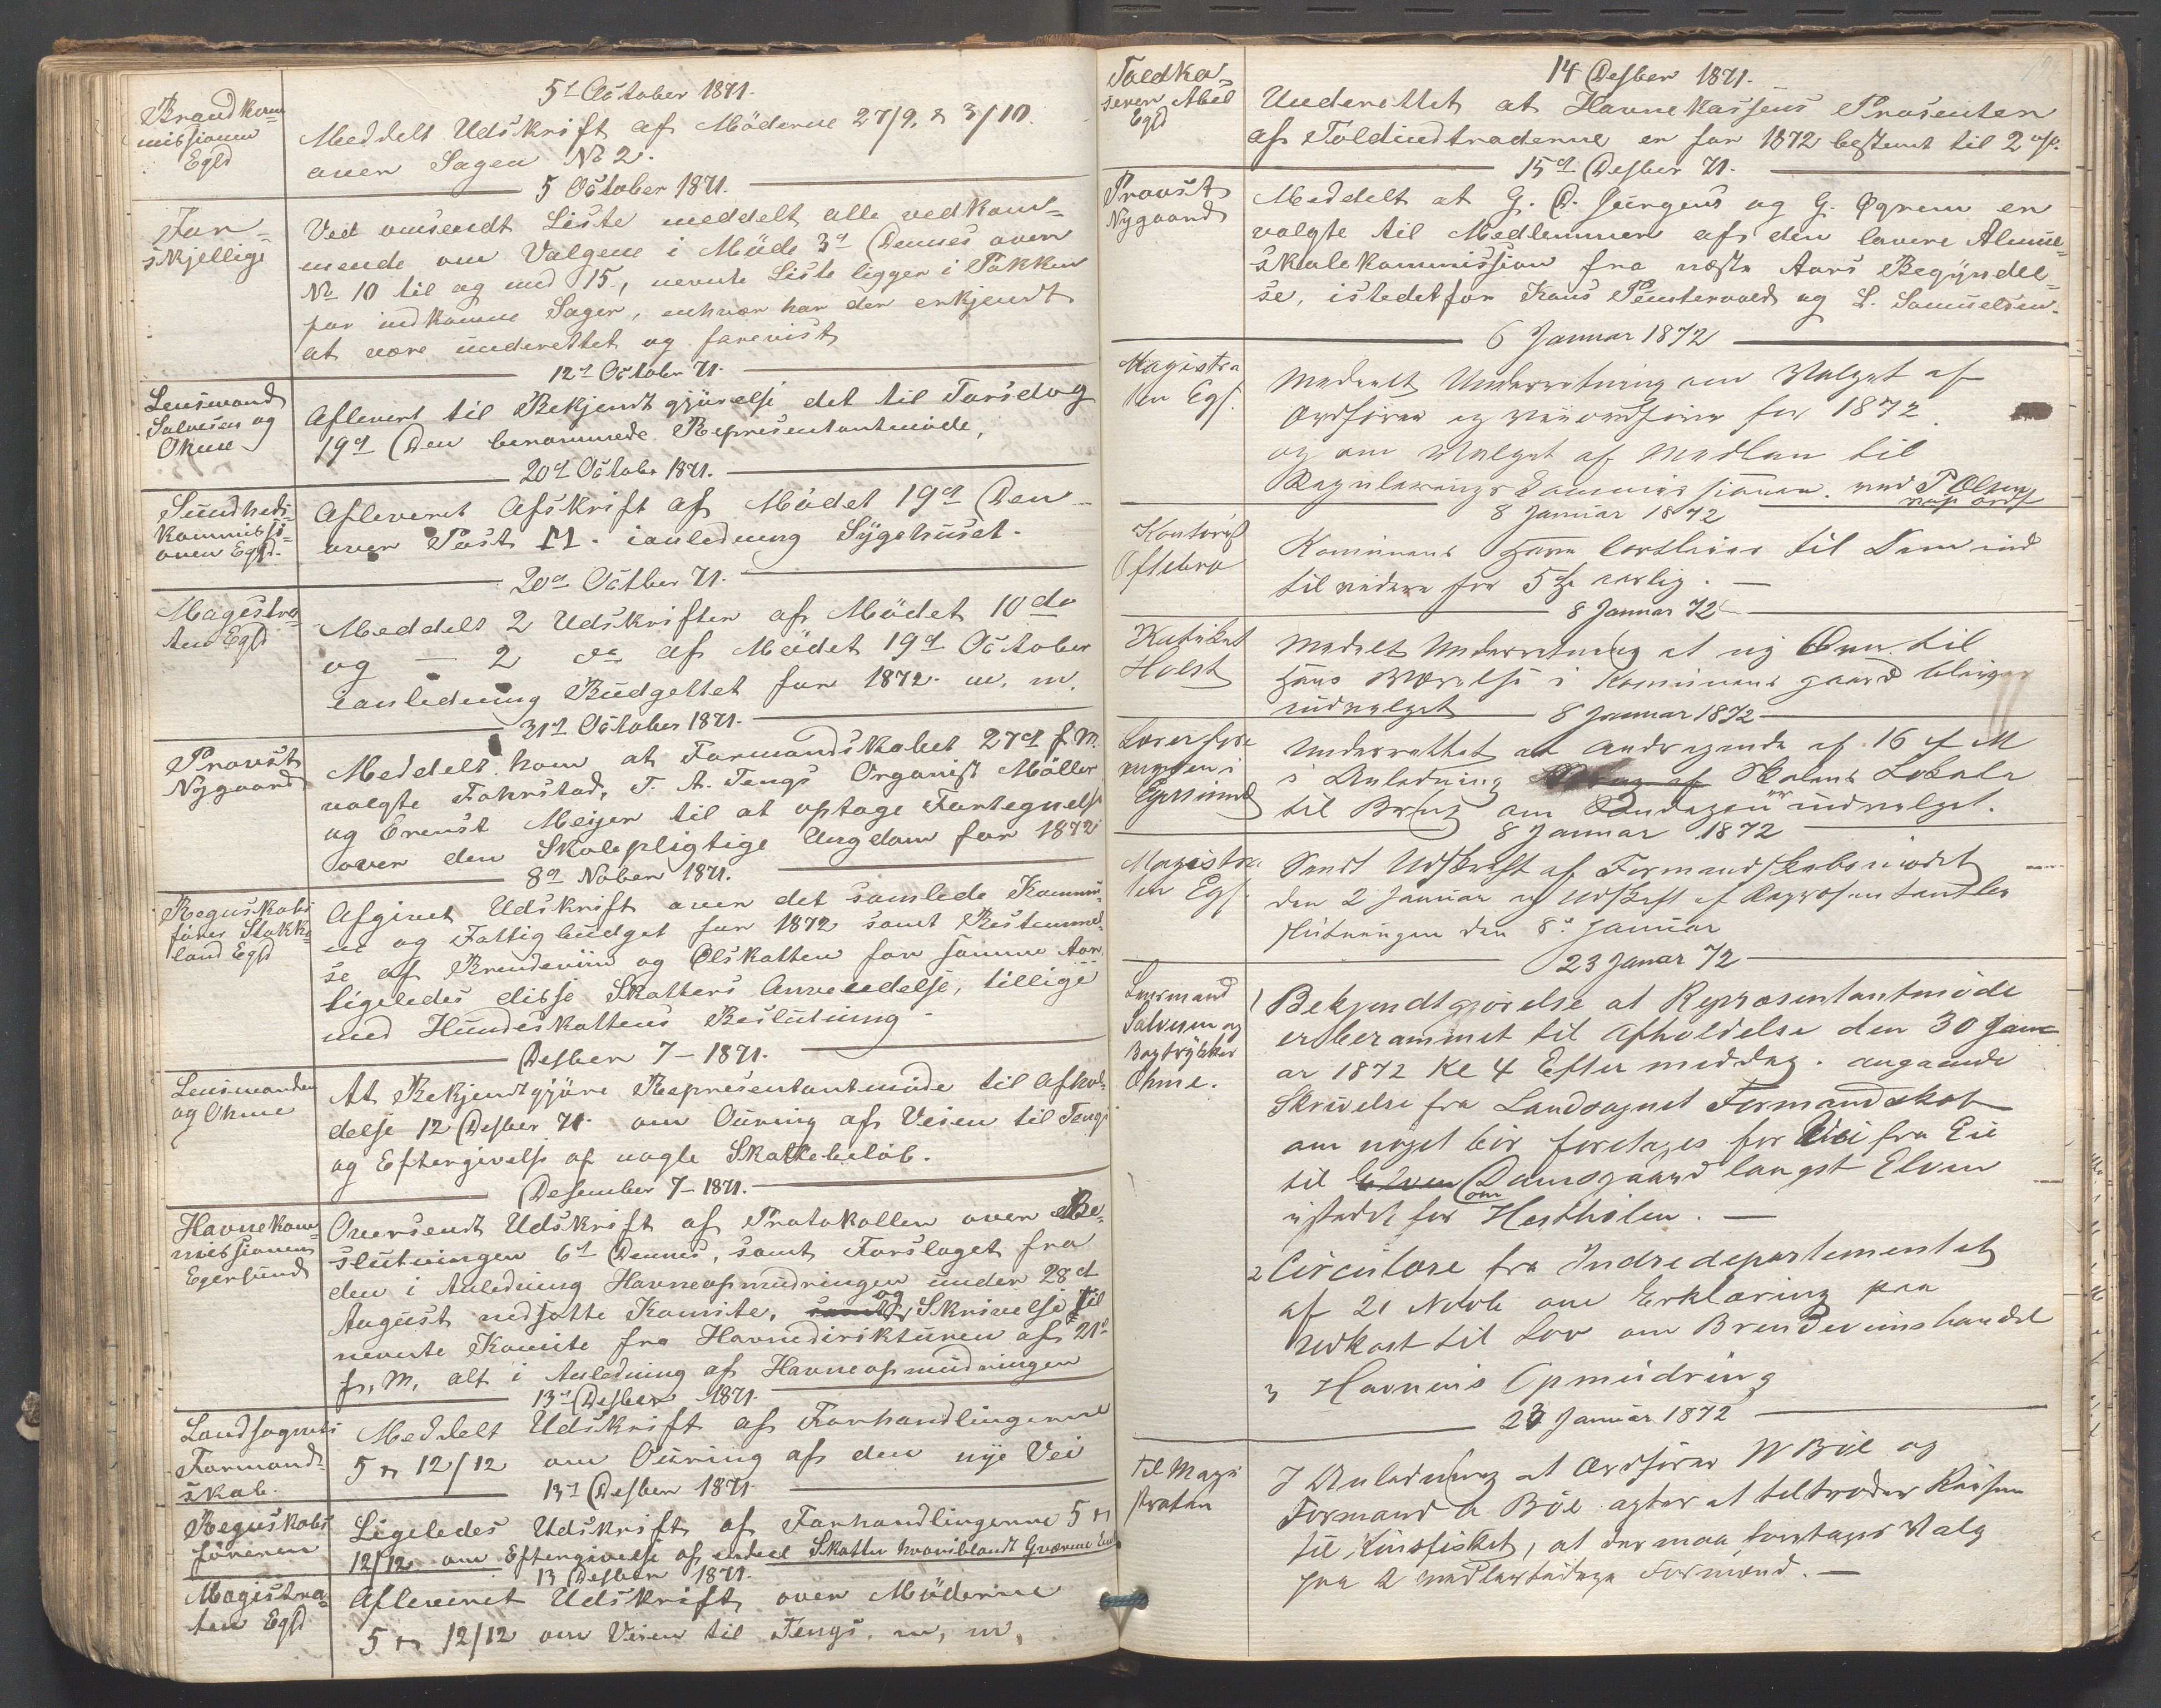 Brandkom=
missionen
Egsd
5t October 1871.
Meddelt Udskrift af Möderne 27/9, & 3/10.
over Sagen No 2.
5 October 1871.
For=
skjellige
Ved omsendt Liste meddelt alle vedkom=
mende om Valgene i Möde 3d Dennes over
No 10 til og med 15, nevnte Liste ligger i Pakken
for indkomne Sager, enhver har der erkjendt
at være underettet og forevist
12t October 71.
Lensmand
Salvesen og
Ohme
Afleveret til Bekjendtgjörelse det til Torsdag
19d Den berammede Representantmöde,
20d October 1871.
Sundheds
kommissi=
onen Egsd.
Afleveret Afskrift af Mödet 19d Den
over Post 11. ianledning Sygehuset.
20d Octber 71.
Magistra
ten Egsd
Meddelt 2 Udskrifter af Mödet 10 do
og — 2 do af Mödet 19d October
ianledning Budgettet for 1872. m. m.
31d October 1871.
Provst
Nygaard
Meddelt ham at Formandskabet 27d f. M.
valgte Fahrstad, T. A. Tengs Organist Möller
og Ernst Meyer til at optage Fortegnelse
over den Skolepligtige Ungdom for 1872
8d Nober 1871.
Regnskabs
förer Stokke
land Egsd
Afgivet Udskrift over det samlede Kommu=
ne og Fattigbudget for 1872 samt Bestemmel=
se af Brendeviin og Ölskatten for samme Aar
ligeledes disse Skatters Anvendelse, tillige
med Hundeskattens Beslutning
Desber 7 – 1871.
Lensmanden
og Ohme
At Bekjendtgjöre Representantmöde til Afhol=
delse 12 Desber 71. om Ouring af Veien til Tengs
og Eftergivelse af nogle Skattebelöb.
Desember 7 – 1871.
Havnekom=
missionen
Egersund
Oversendt Udskrift af Protokollen over Be=
slutningen 6t Dennes, samt Forslaget fra
den i Anledning Havneopmudringen under 28d
August nedsatte Komite, og Skrivelse til
nevnte Komite fra Havnedirektüren af 21d
f, M, alt i Anledning af Havneopmudringen
13d Desber 1871.
Landsognets
Formand=
skab.
Meddelt Udskrift af Forhandlingerne
5 & 12/12 om Ouring af den nye Vei
13d Desber 1871.
Regnskabs
föreren
Ligeledes Udskrift af Forhandlingerne 5 &
12/12 om Eftergivelse af endeel Skatter hvoriblandt
13 Desber 1871.
Magistra=
ten Egsd
Afleveret Udskrift over Möderne
5 & 12/12 om Veien til Tengs. m, m,
Toldka=
serer Abel
Egsd
14 Desber 1871.
Underettet at Havnekassens Prosenter
af Toldindtraderne er for 1872 bestemt til 2
15d Desber 71.
Provst
Nygaard
Meddelt at G. D. Jürgens og G. Ögrem er
valgte til Medlemmer af den lavere Almue=
skolekommission fra næste Aars Begyndel=
se, istedetfor Hans Puntervold og L. Samuelsen.
6 Januar 1872
Magistra
ten Egs.
Meddelt Underretning om Valget af
Ordförer og Viceordförer for 1872
og om Valget af Medlem til
Reguleringskommissionen. ved P Olsen
8 Januar 1872
Kontorist
Oftebro
Kommunens til Dem ind
til videre for 5 aarlig. —
8 Januar 72
Kateket
Holst
Meddelt Underretning at ny Ovn til
Hans Værelse i Kommunens gaard bliver
indvilget
8 Januar 1872
Underrettet at Andragende af 16 f M
i Anledning Skolens Lokale
til Brug om Söndagen er indvilget.
8 Januar 1872
Magistra
ten Egs.
Sendt Udskrift af Formandskabsmödet
den 2 Januar og Udskrift af Repræsentantbe
slutningen den 8d Januar
23 Januar 72
Lensmand
Salvesen og
Bogtrykker
Ohme.
1 Bekjendtgjörelse at Repræsentantmöde
er berammet til Afholdelse den 30 Janu
ar 1872 Kl 4 Eftermiddag. angaaende
Skrivelse fra Landsognet Formandskab
om noget bör foretages for Vei fra Eie
til Elven Damsgaard langst Elven
istedet for om Hestholen. —
2 Circulære fra Indredepartementet
af 21 Novb om Erklæring paa
Udkast til Lov om Brendevinshandel
3 Havnens Opmudring
23 Januar 1872
Til Magi
straten
I Anledning at Ordförer W Böe og
Formand A Böe agter at tiltræder Reisen
til , at der maa foretages Valg
paa 2 Formænd. —